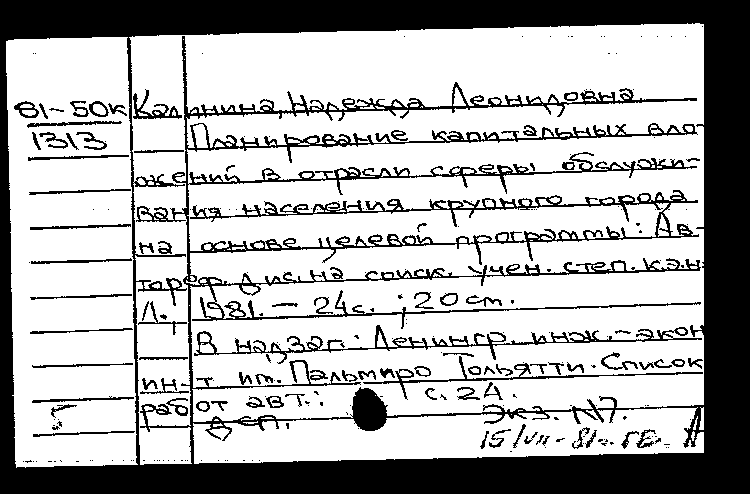 81-50к Калинина, Надежда Леонидовна.
1313 Планирование капитальных вло-
жений в отрасли сферы обслужи-
вания населения крупного города
на основе целевой программы: Ав-
тореф. дис. на соиск. учен. степ. к.э.н.
Л., 1981. – 24 с. ; 20 ст.
В надзаг.: Ленингр. инж.-экон
ин-т им. Пальмиро Тольятти. Список
работ авт.: с. 24.
5 Деп. Экз. N7.
15/VII-81г. ГБ. А